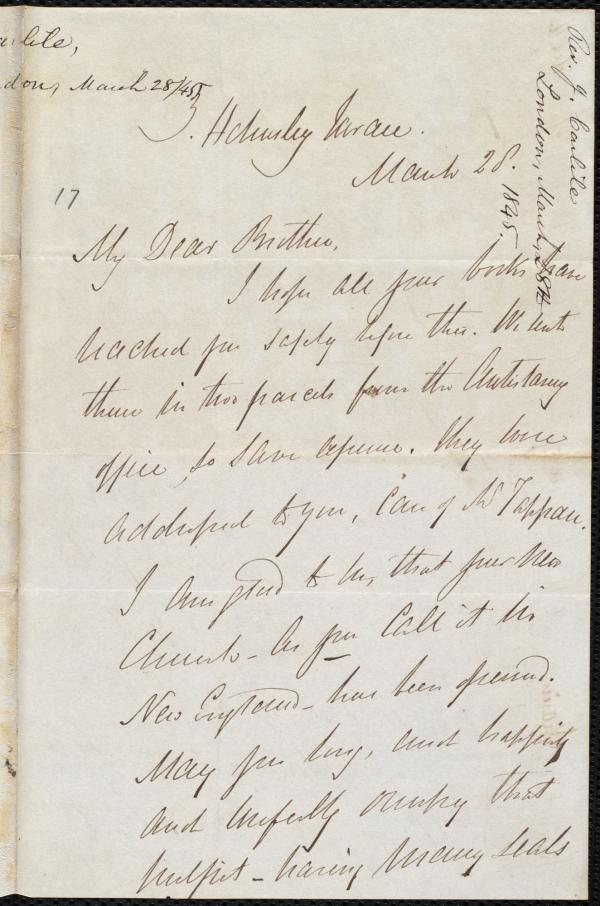 arlile,
don, March 28/45
Rev. J. Carlile
London, March 28th
1845.
17
3. Helmsley Terrace.
March 28.
My Dear Brother,
I hope all your books have
reached you safely before this. We sent
them in two parcels from the Antislavery
office, to save expense. They were
addressed to you, Care of Mr Tappan.
I am glad to see, that your New
Church - As you Call it in
New England - has been opened.
May you long, and happily
and usefully occupy that
pulpit - having many seals